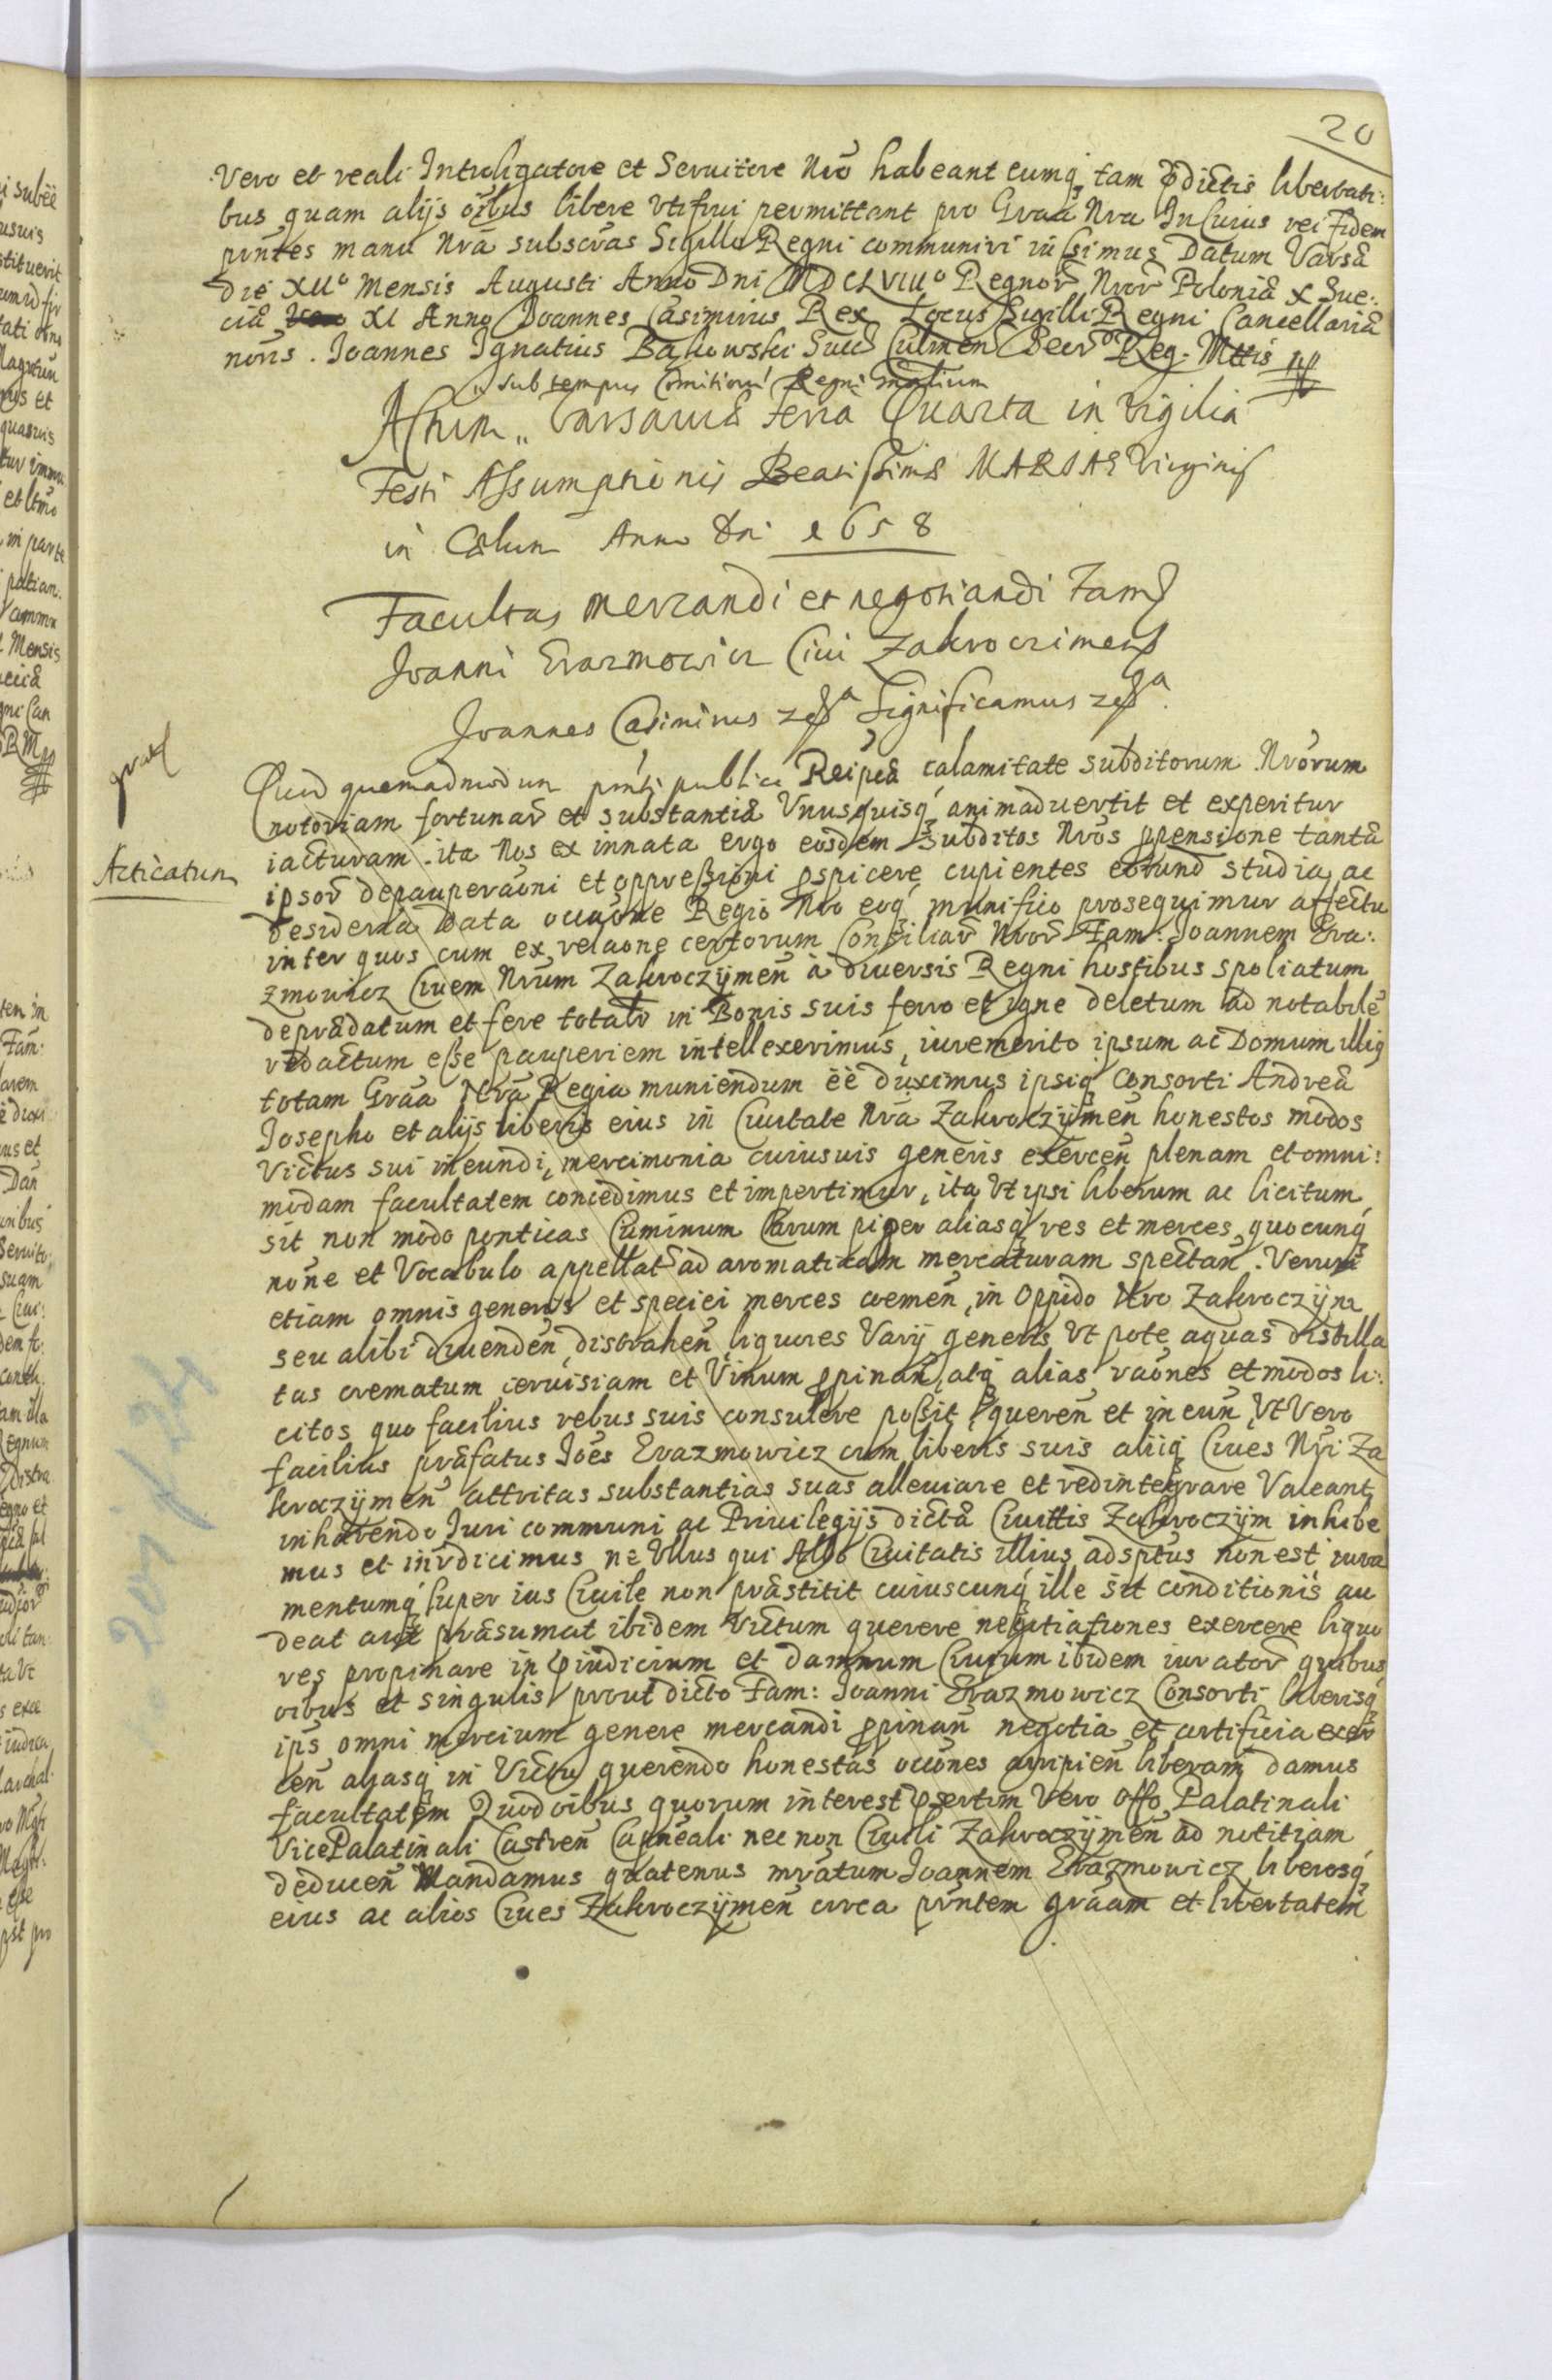 20
Vero et reali Introligatore et Servitore Nro habeant eumq, tam pdictis libertati:
bus quam alijs oibus libere Vtifrui permittant pro Graa Nra In Cuius rei fidem
pnntes manu Nra subscras Sigillo Regni communiri iussimus Datum Varsa
die XIIo Mensis Augusti Anno Dni MDCLVIIIo Regnor Nror Poloniæ X Sue:
ciæ XI Anno Joannes Casimirus Rex Locus Sigilli Regni Cancellariæ
noris. Joannes Ignatius Bąkowski Succ Culmen Secr Reg. Mttis
sub tempus Comitioru Regni
Actum Varsaviæ Feria Quarta in Vigilia
Festi Assumptionis Beatissimæ MARIAE Virginis
in Cælum Anno Dni 1658
Facultas mercandi et negotiandi Fam
Joanni Erazmowicz Civi Zakroczimens
Joannes Casimirus Significamus
Quod quemadmodum pnti publica Reipcæ calamitate subditorum Nrorum
notoriam fortunar et substantiæ Vnusquisq animadvertit et experitur
Acticatum
iacturam. ita Nos ex innata ergo eosdem subditos Nros ppensione tantæ
ipsor depauperaoni et oppressioni pspicere cupientes eorund studia ac
desideria Data occaone Regio Nro eoq munifico prosequimur affectu
inter quos cum ex relaone certorum Consiliar Nror Fam: Joannem Era:
zmowicz Civem Nrum Zakroczÿmen à diversis Regni hostibus spoliatum
deprædatum et fere totalr in Bonis suis ferro et igne deletum ad notabile
redactum esse pauperiem intellexerimus, iuremerito ipsum ac Domum illiq
totam Graa Nra Regia muniendum ee duximus ipsiq Consorti Andreæ
Josepho et alijs liberis eius in Civitate Nra Zakroczÿmen honestos modos
Victus sui ineundi, mercimonia cuiusvis generis exercen plenam et omni:
modam facultatem concedimus et impertimur, ita Vt ipsi liberum ac licitum
sit non modo ponticas Cuminum Carum piper aliasq res et merces quocunq
none et Vocabulo appellat ad aromaticam mercaturam spectan. Verum
etiam omnis generis et speciei merces coemen, in Oppido Nro Zakroczÿm
seu alibi divenden, distrahen, liquores Varij generis Vt pote aquas distilla
tas crematum cervisiam et Vinum ppinan, atq alias raones et modos li:
citos quo facilius rebus suis consulere possit queren et ineun Vt Vero
facilius præfatus Joes Erazmowicz cum liberis suis aliiq Cives Nri Za
kroczÿmen attritas substantias suas alleviare et redintegrare Valeant
inhærendo Juri communi ac Privilegijs dictæ Civittis Zakroczÿm inhibe
mus et inrdicimus ne Vllus qui Albo Civitatis illius adsptus non est iura
mentumq super ius Civile non præstitit cuiuscunq ille sit conditionis au
deat aut præsumat ibidem Victum querere negotiationes exercere liquo
res propinare in piudicium et damnum Civium ibidem iurator quibus
oibus et singulis prout dicto Fam: Joanni Erazmowicz Consorti liberisq
ips omni mercium genere mercandi ppinan negotia et artificia exer
cen aliasq in Victu querendo honestas occones arripien liberam damus
facultatem Quod oibus quorum interest psertim Vero Offo Palatinali
VicePalatinali Castren Capneali nec non Civili Zakroczÿmen ad notitiam
deducen Mandamus quatenus mratum Joannem Erazmowicz liberosq
eius ac alios Cives Zakroczÿmen circa pnntem graam et libertatem